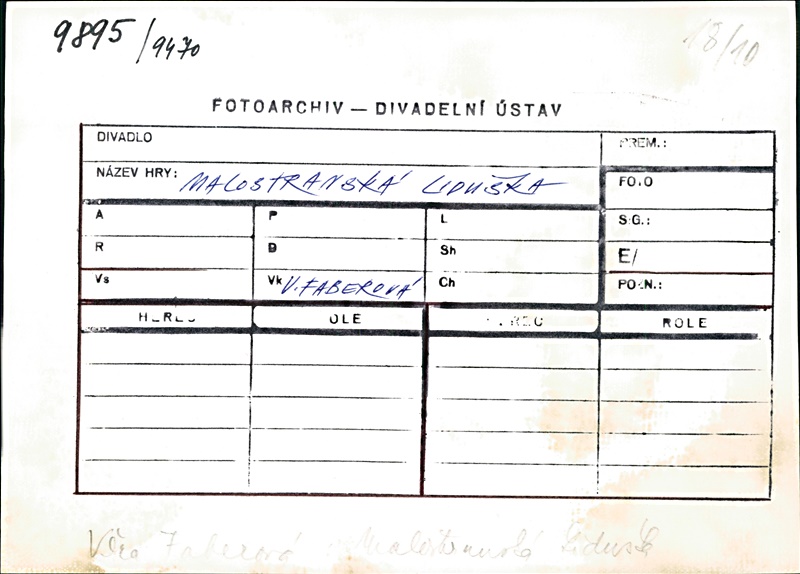 9895/9470
18/10
FOTOARCHIV — DIVADELNÍ ÚSTAV
DIVADLO
PREM.:
NÁZEV HRY: MALOSTRANSKÁ LIDUŠKA
FOTO
A P L SIG.:
R D Sh E/
Vs Vk V. FABEROVÁ Ch POZN.:
HEREC ROLE HEREC ROLE
Věra Faberová Malostranská Liduška